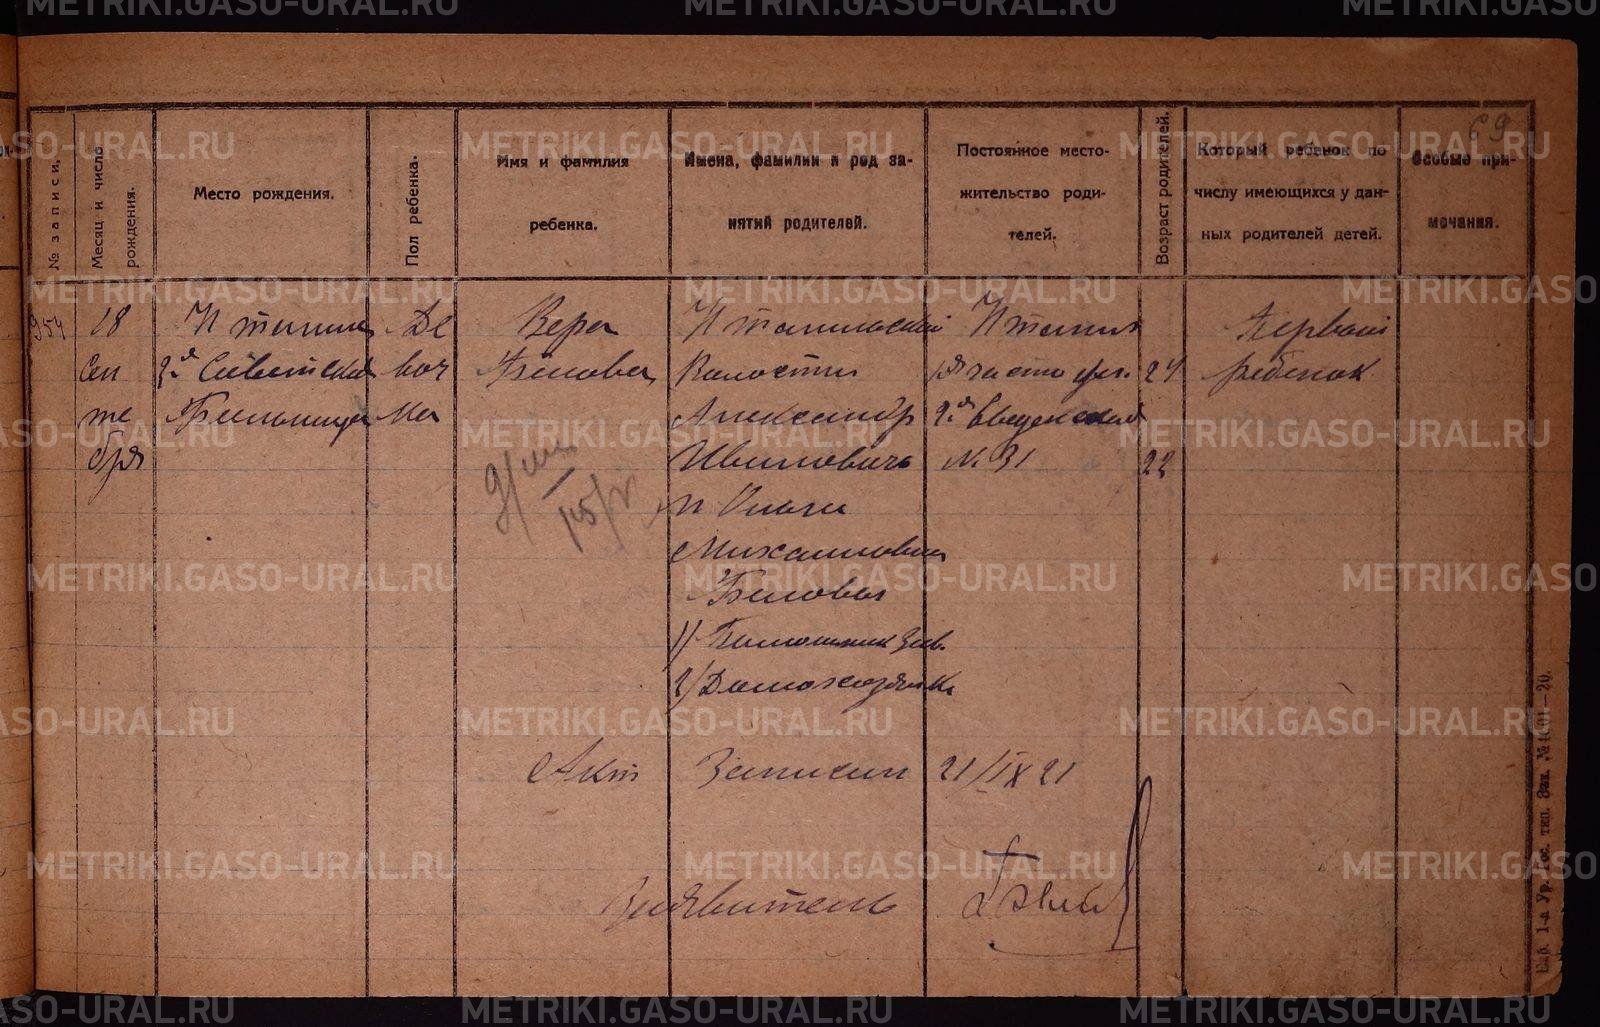 69
№ записи.
Месяц и число рождения.
Место рождения.
Пол ребенка.
Имя и фамилия
ребенка.
Имена, фамилии и род за-
нятий родителей.
Постоянное место-
жительство роди-
телей.
Возраст родителей.
Который ребенок по
числу имеющихся у дан-
ных родителей детей.
Особые при-
мечания.
954
18
Сен
тя
бря
2я Советская
Больница
Де
воч
ка
Вера
Белова
Волости
Александр
Иванович
и
Михайловна
Беловы
1/ Помошник Зав.
2/ Домохозяйка
1я часть ул.
2я Введенская
№ 31
24
22
Первый
ребенок
Акт Записан 21/IX 21
Заявитель
Екб. 1-а Ур. Гос. тип. Зак.
METRIKI.GASO-URAL.RU